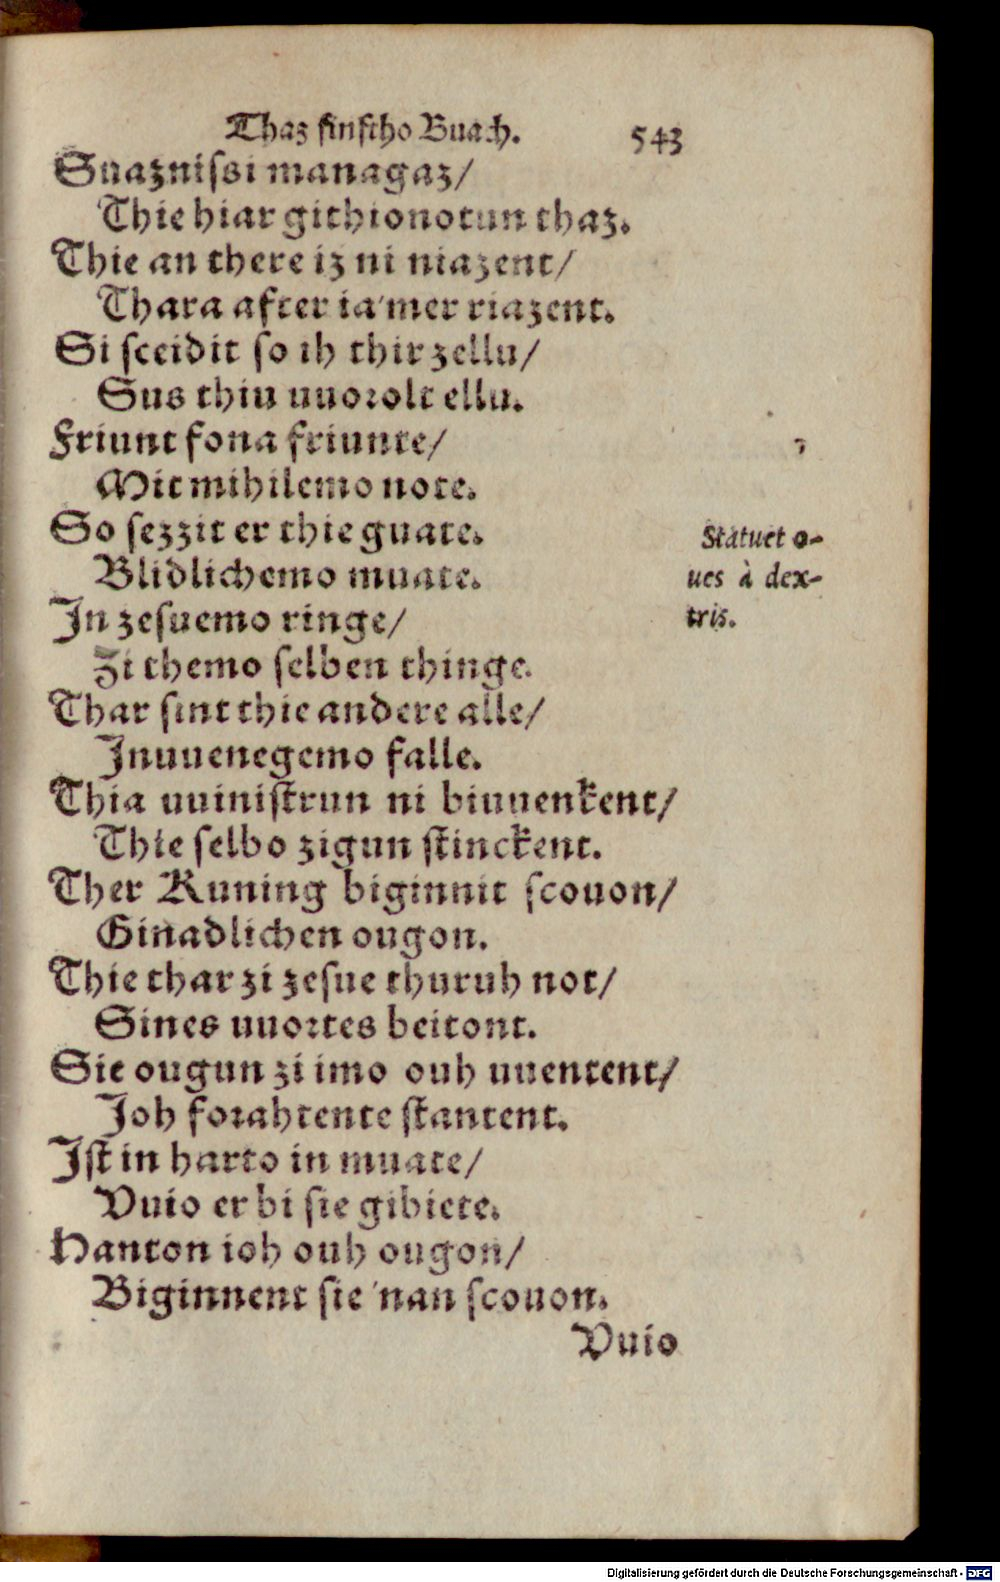 Thaz finftho Buach. 543
Suaznissi managaz/
Thie hiar githionotun thaz.
Thie an there iz ni niazent/
Thara after ia'mer riazent.
Si sceidit so ih thir zellu/
Sus thiu uuorolt ellu.
Friunt fona friunte/
Mit mihilemo note.
So sezzit er thie guate.
Blidlichemo muate.
In zesuemo ringe/
Zi themo selben thinge.
Thar sint thie andere alle/
Inuuenegemo falle.
Thia uuinistrun ni biuuenkent/
Thie selbo zigun stinckent.
Ther Kuning biginnit scouon/
Ginadlichen ougon.
Thie thar zi zesue thuruh not/
Sines uuortes beitont.
Sie ougun zi imo ouh uuentent/
Joh forahtente stantent.
Ist in harto in muate/
Vuio er bi sie gibiete.
Hanton ioh ouh ougon/
Biginnent sie 'nan scouon.
Vuio
Statuet o-
ues à dex-
tris.
Digitalisierung gefördert durch die Deutsche Forschungsgemeinschaft - DFG